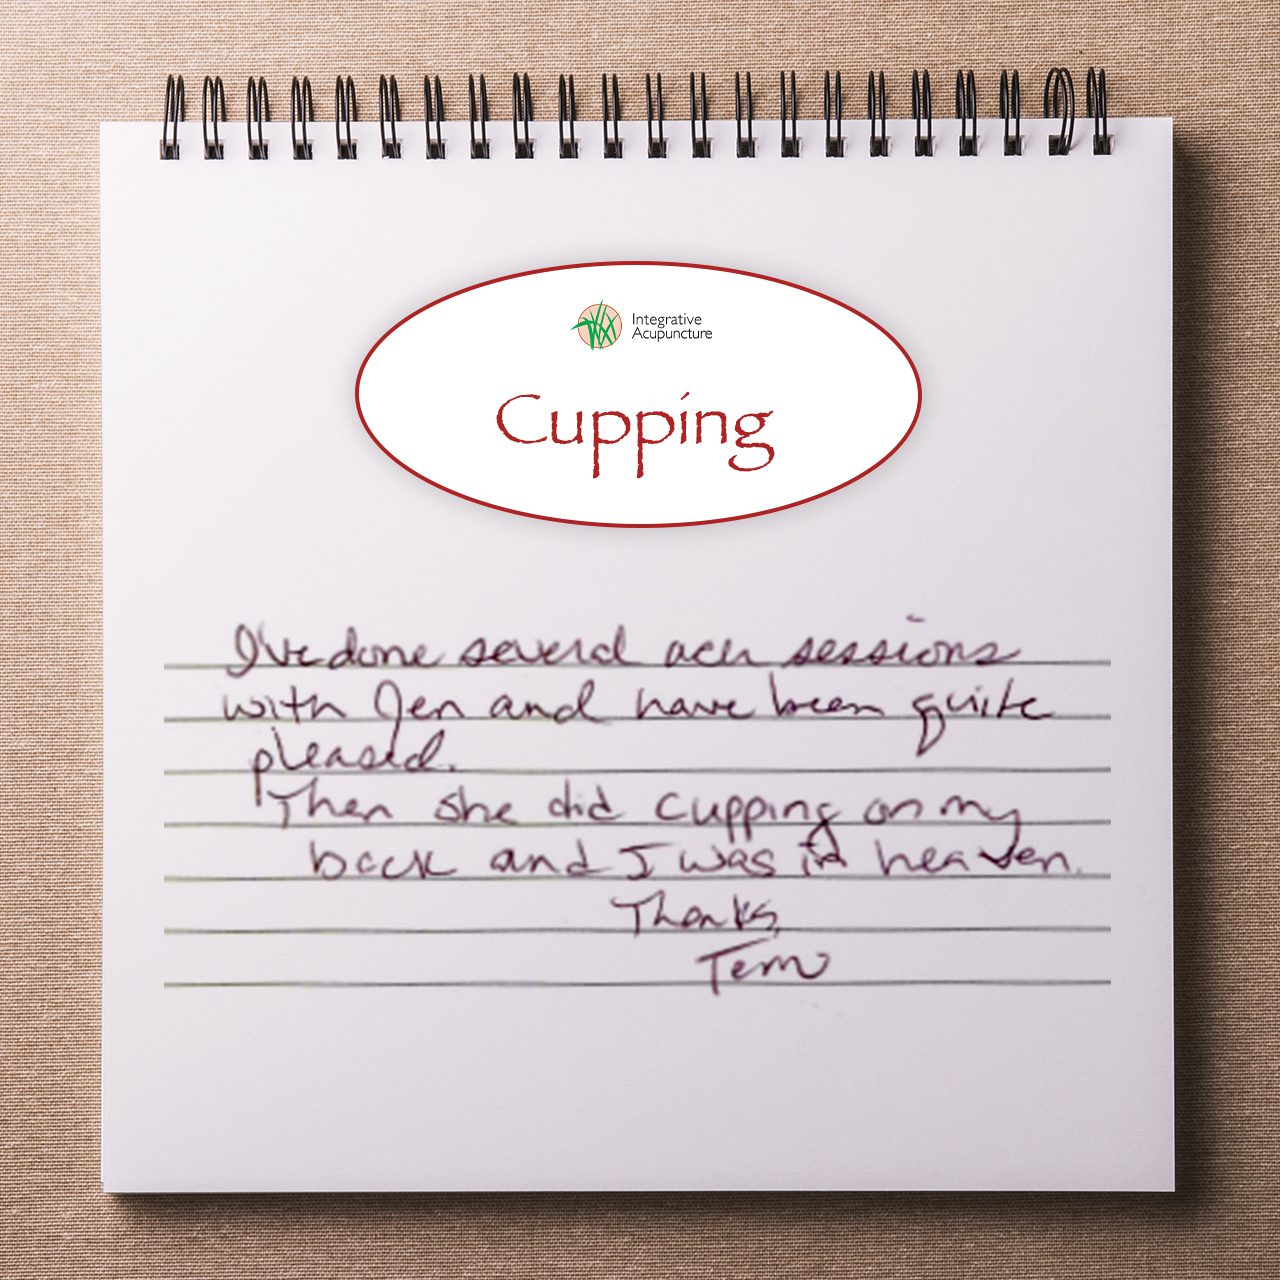 Integrative
Acupuncture
Cupping
I've done several acu sessions
with Jen and have been quite
pleased.
Then she did cupping on my
back and I was in heaven.
Thanks,